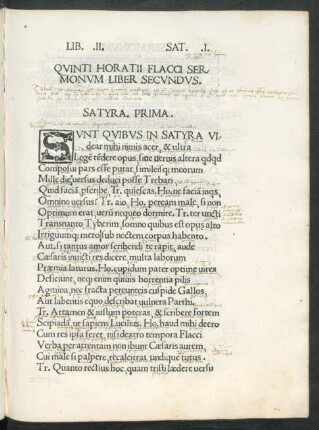 LIB. .II. SAT. .I.
QVINTI HORATII FLACCI SER
MONVM LIBER SECVNDVS.
SATYRA. PRIMA.
SVNT QVIBVS IN SATYRA VI
dear nimi nimis acer, & ultra
Legē tēdere opus, sine neruis altera qdqd
Composui pars esse putat, similesq; meorum
Mille die uersus deduci posse Trebati
Quid faciā pscribe. Tr. quiescas. Ho. ne faciā inqs,
Omnino uersus? Tr. aio. Ho. peream male, si non
Optimum erat, uerū nequeo dormire. Tr. ter uncti
Transnanto Tyberim, somno quibus est opus alto
Irriguumq; mero sub noctem corpus habento.
Aut, si tantus amor scribendi te rapit, aude
Cæsaris inuicti res dicere, multa laborum
Præmia laturus. Ho. cupidum pater optime uires
Deficiunt, neq; enim quiuis horrentia pilis
Agmina, nec fracta pereunteis cuspide Gallos,
Aut labentis equo describat uulnera Parthi.
Tr. Attamen & iustum poteras, & scribere fortem
Scipiadā, ut sapiens Lucilius. Ho. haud mihi deero
Cum res ipsa feret, nisi dextro tempora Flacci
Verba per attentam non ibunt Cæsaris aurem,
Cui male si palpere, recalcitrat undique tutus.
Tr. Quanto rectius hoc, quam tristi lædere uersu